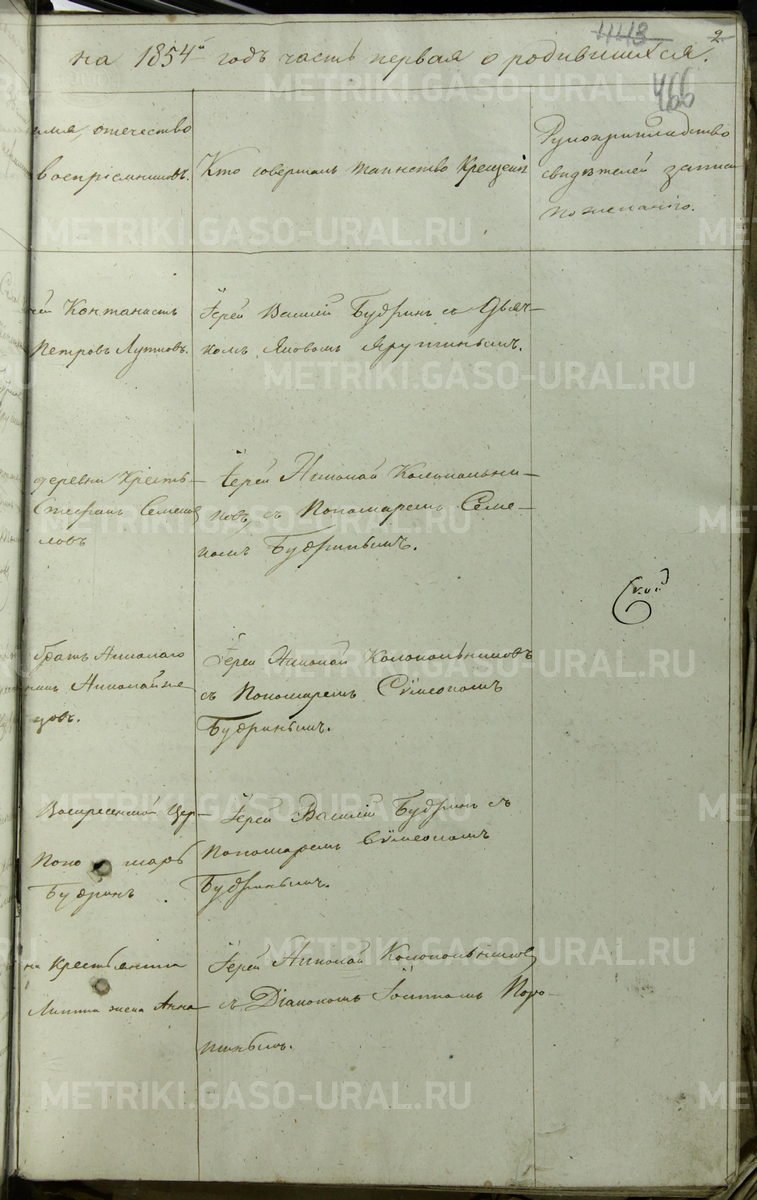 443 2
на 1854й годъ часть первая о родившихся.
466
имя, отечество
воспріемниковъ.
Кто совершалъ таинство Крещенія
Рукоприкладство
свидѣтелей записи
по желанію.
Петровъ
Іерей Василій Будринъ съ Дьяч-
комъ Яковомъ
деревни Кресть-
Стефанъ Семенов
ловъ
Іерей Николай Колокольни-
ковъ, съ Пономаремъ Семе-
номъ Будринымъ.
братъ Николаго
Николай
цовъ.
Іерей Николай Колокольниковъ
съ Пономаремъ Сѵмеономъ
Будринымъ.
Воскресенской Цер-
Поно марь
Будринъ
Іерей Василій Будринъ съ
Пономаремъ Сѵмеономъ
Будринымъ.
на Крестьянина
жена Анна
Іерей Николай Колокольников
съ Діакономъ Іоанномъ Поро-
METRIKI.GASO-URAL.RU